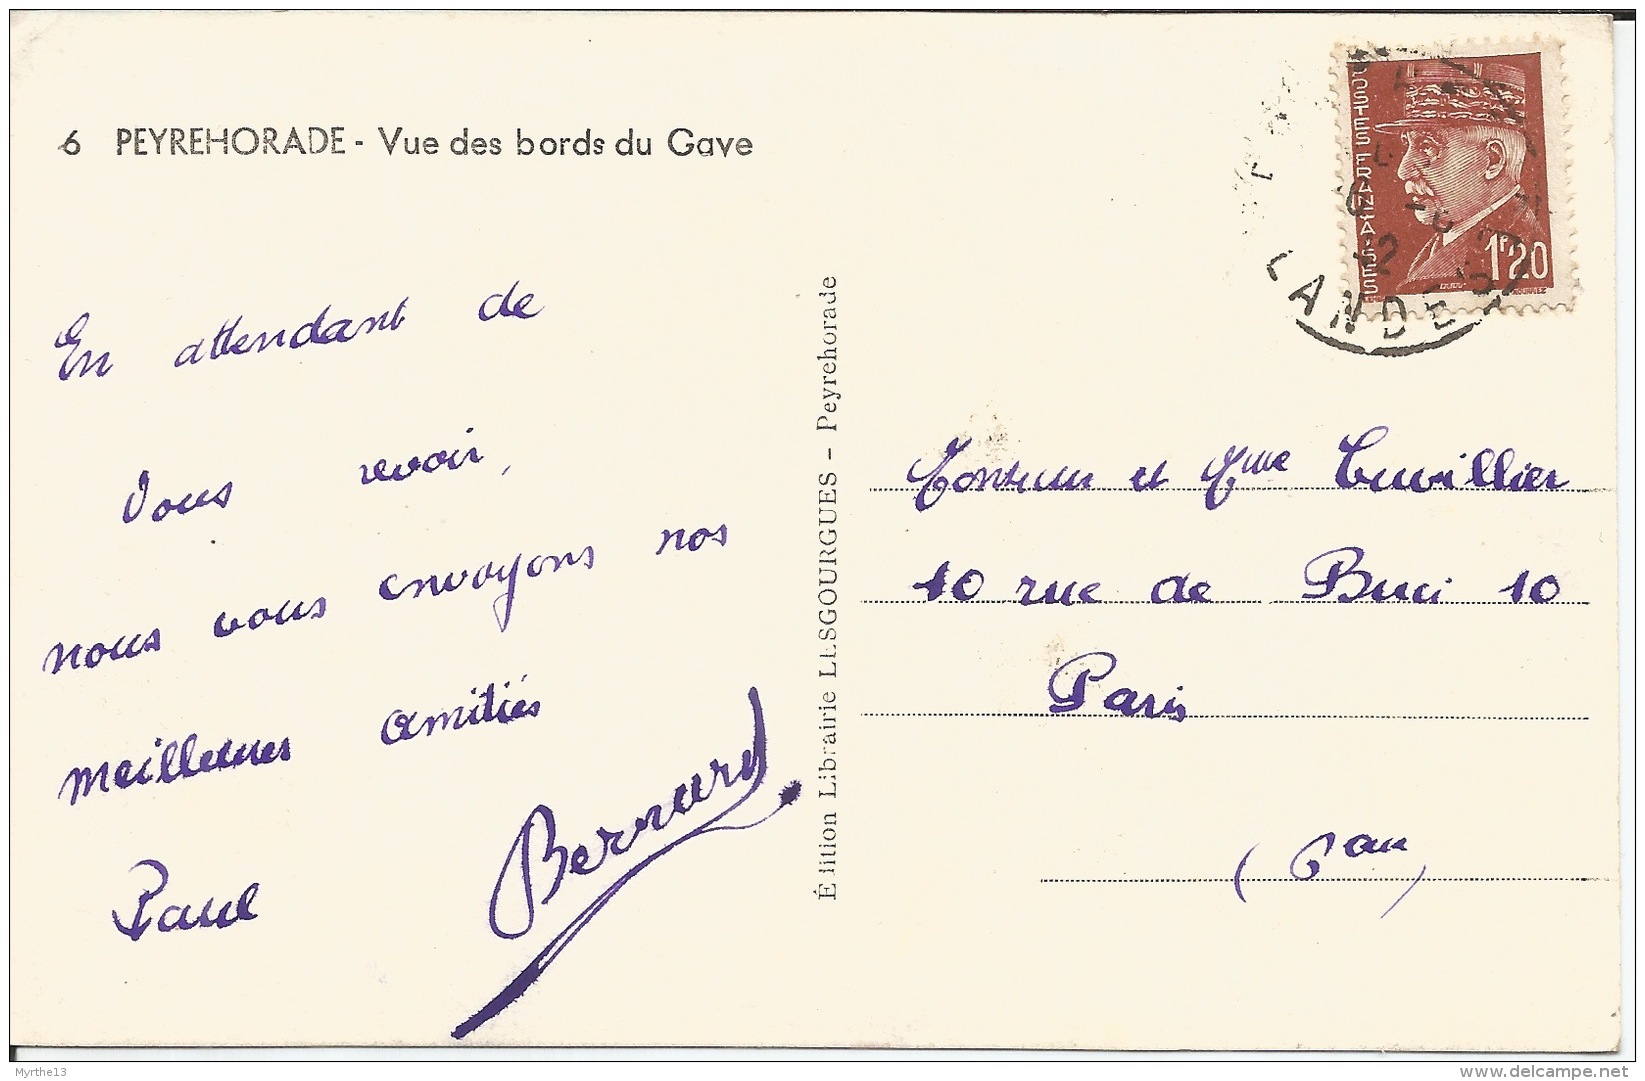 6 PEYREHORADE - Vue des bords du Gave
En attendant de
vous revoir,
nous vous envoyons nos
meilleures amitiés
Paul
Bernard
Édition Librairie LESGOURGUES - Peyrehorade
POSTES FRANÇAISES
1F,20
LANDES
Monsieur et Mme Cuvillier
10 rue de Buci 10
Paris
Myrthe13
www.delcampe.net